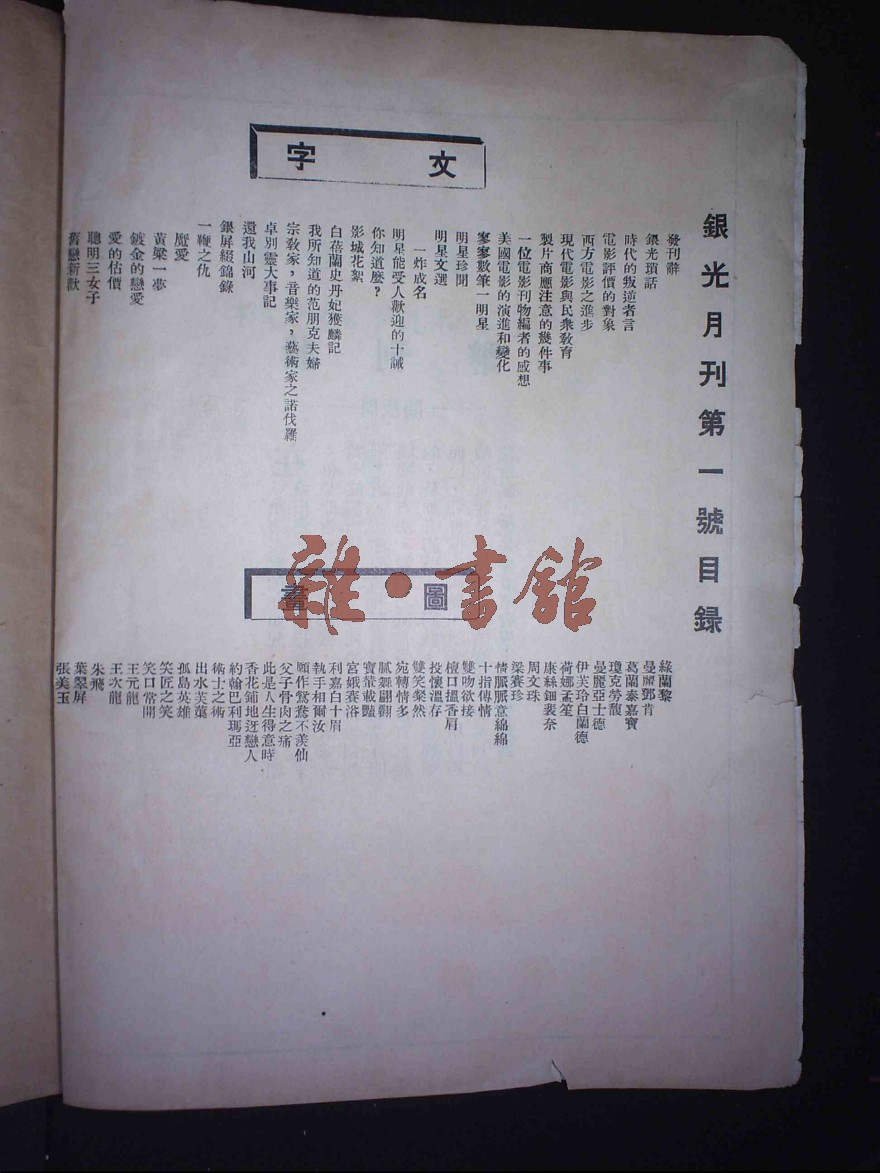 銀光月刊第一號目錄
文字
發刊辭
銀光瑣話
時代的叛逆者言
電影評價的對象
西方電影之進步
現代電影與民衆敎育
製片商應注意的幾件事
一位電影刊物編者的感想
美國電影的演進和變化
寥寥數筆一明星
明星珍聞
明星文選
一炸成名
明星能受人歡迎的十誡
你知道麽?
影城花絮
白蓓蘭史丹妃獲麟記
我所知道的范朋克夫婦
宗敎家,音樂家,藝術家之諾伐羅
卓別靈大事記
還我山河
銀屏綴錦錄
一鞭之仇
魔愛
黃粱一夢
鍍金的戀愛
愛的估價
聰明三女子
舊戀新歡
圖畫
綠蘭黎
曼麗鄧肯
葛蘭泰嘉寶
瓊克勞馥
曼麗亞士德
伊芙玲白蘭德
荷娜孟笙
康絲鈿裴奈
周文珠
梁賽珍
情脈脈意綿綿
十指傳情
雙吻欲接
檀口搵香肩
投懷溫存
雙笑粲然
宛轉情多
膩舞翩翩
寶輦載豔
宮娥賽浴
利嘉白十眉
執手相爾汝
願作鴛鴦不羨仙
父子骨肉之痛
此是人生得意時
香花鋪地迓戀人
約翰巴利瑪亞
術士之術
出水芙蕖
孤島英雄
笑匠之笑
笑口常開
王元龍
王次龍
朱飛
葉翠屏
張美玉
雜·書館